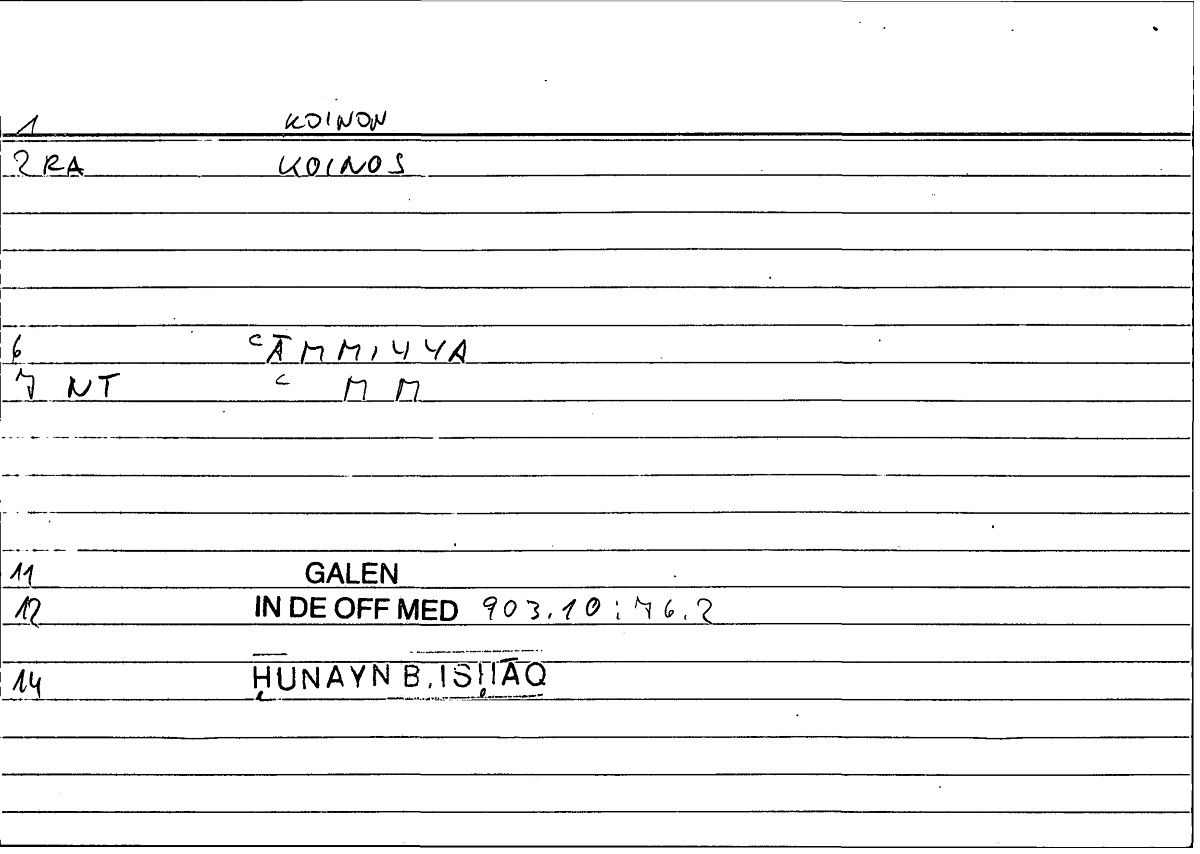 1 KOINON
2 RA KOINOS
6 ʿĀMMIYYA
7 NT ʿ M M
11 GALEN
12 IN DE OFF MED 903.10 : 76.2
14 ḤUNAYN B. ISḤĀQ